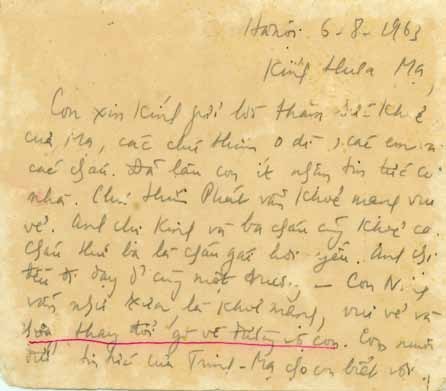 Hanoi 6-8-1963
Kính thưa Mạ,
Con xin kính gửi lời thăm sức khoẻ
của Mạ, các chú thím O dì, các em và
các cháu. Đã lâu con ít nhận tin tức ở
nhà. Chú thím Phát vẫn khoẻ mạng vui
vẻ. Anh chị King và ba cháu cũng khoẻ cả.
Cháu thứ ba là cháu gái hơi yếu. Anh chị
đều đi dạy ở cùng một - Con N.
vẫn như xưa, là khoẻ mạng, vui vẻ và
thay đổi gì về đường vợ con. Con muốn
tin tức của Mạ cho con biết với.